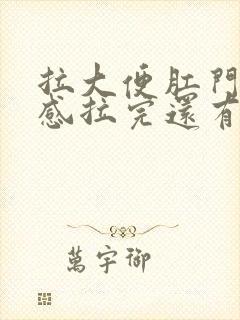 拉大便肛門
感拉完還有
萬宇御